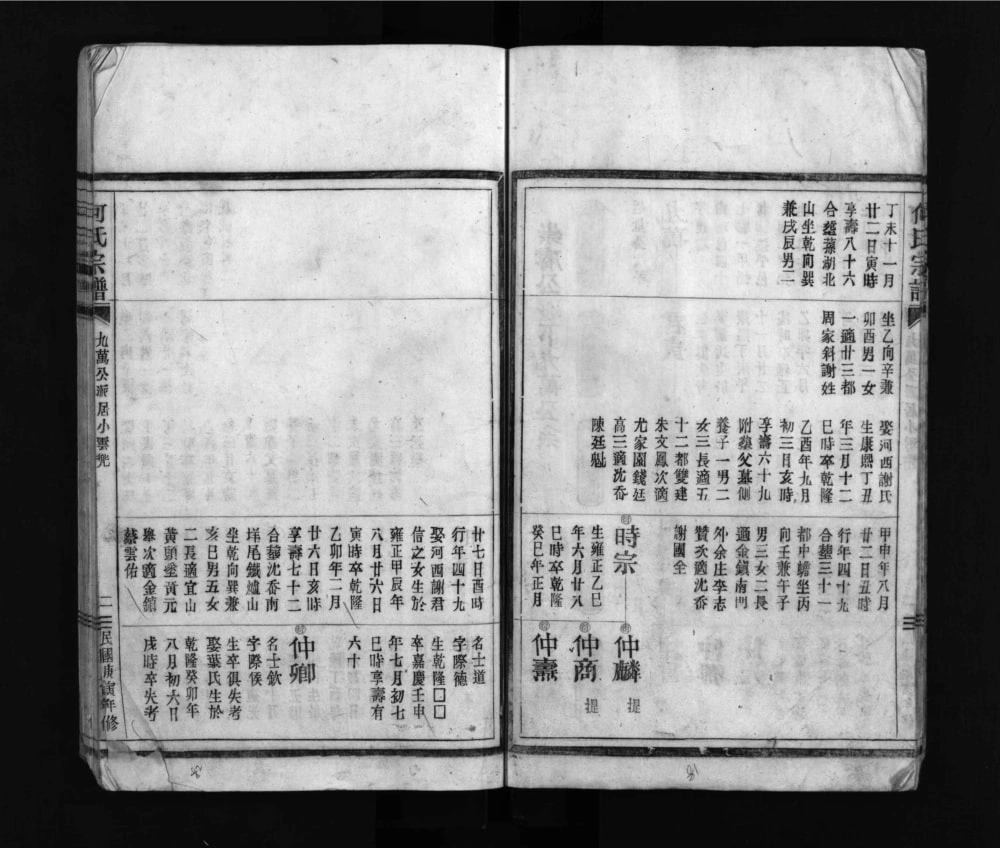 何氏宗譜
丁未十一月
廿二日寅時
享壽八十六
合塟蓀湖北
山坐乾向巽
兼戌辰男二
坐乙向辛兼
卯酉男一女
一適廿三都
周家斜謝姓
娶河西謝氏
生康熙丁丑
年三月十二
巳時卒乾隆
乙酉年九月
初三日亥時
享壽六十九
附塟父墓側
養子一男二
女三長適五
十二都雙建
朱文鳳次適
尤家園錢廷
高三適沈岙
陳廷魁
甲申年八月
廿二日丑時
行年四十九
合塟三十一
都中瞻坐丙
向壬兼午子
男三女二長
適金鎮南門
外余庄李志
贊次適沈岙
謝國全
時宗
生雍正乙巳
年六月廿八
巳時卒乾隆
癸巳年正月
仲麟
提
仲商
提
仲燾
廿七日酉時
行年四十九
娶河西謝君
信之女生於
雍正甲辰年
八月廿六日
寅時卒乾隆
乙卯年二月
廿六日亥時
享壽七十二
合塟沈岙南
垟尾鐵爐山
坐乾向巽兼
亥巳男五女
二長適宜山
黃頭垄黃元
雖次適金舘
蔡雲佑
名士道
字際德
生乾隆□□
卒嘉慶壬申
年七月初七
巳時享壽有
六十
仲卿
名士欽
字際候
生卒俱失考
娶葉氏生於
乾隆癸卯年
八月初六日
戌時卒失考
何氏宗譜
九萬公派居小雲㘭
二
民國庚寅年修